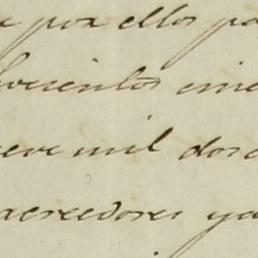 por ellos pa
cientos cinc
eve mil dosc
acreedores ya